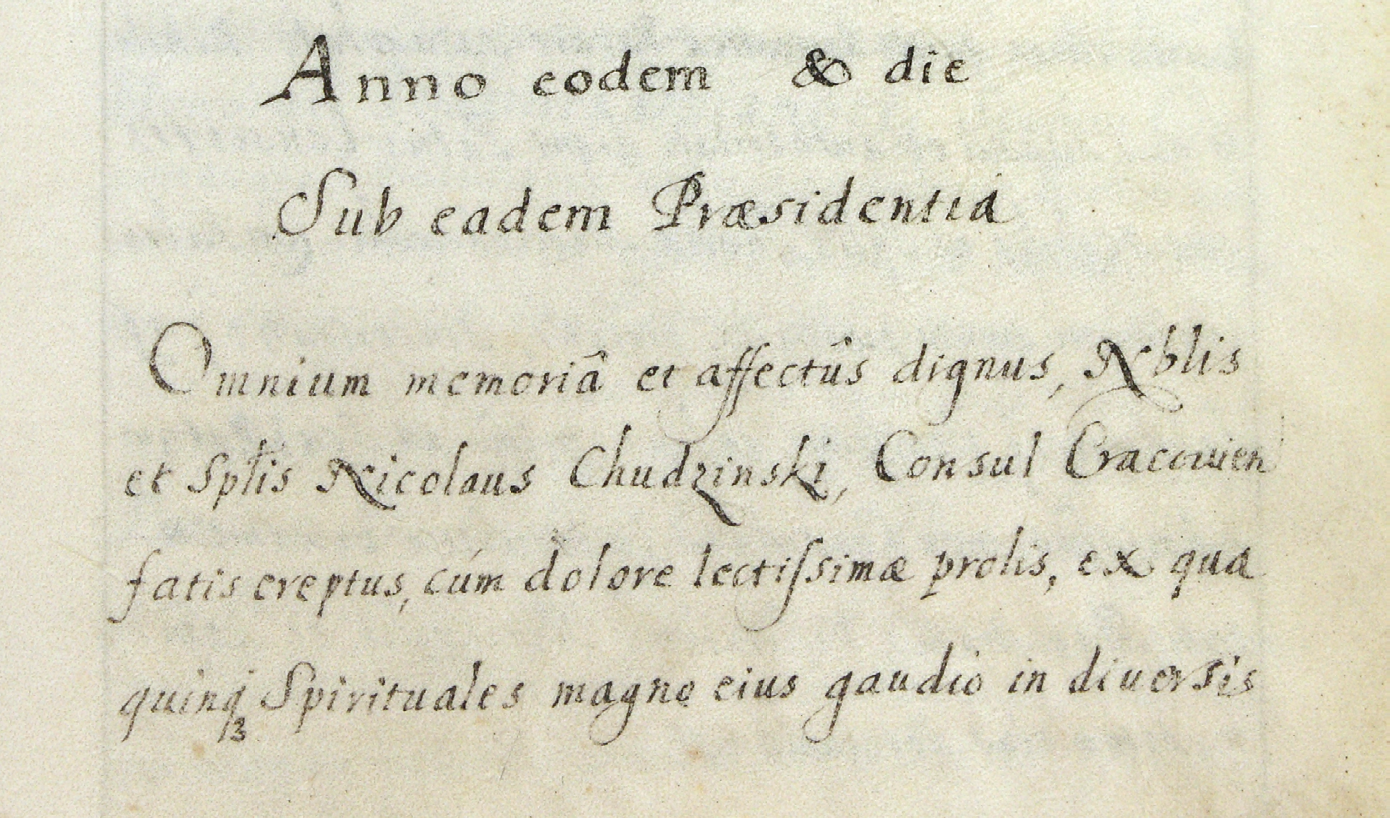 Anno eodem & die
Sub eadem Præsidentia
Omnium memoriâ et affectûs dignus, Nblis
et Spłis Nicolaus Chudzinski, Consul Cracouien
fatis ereptus, cúm dolore lectiſsimæ prolis, ex qua
quinq́3 Spirituales magno eius gaudio in diuersis